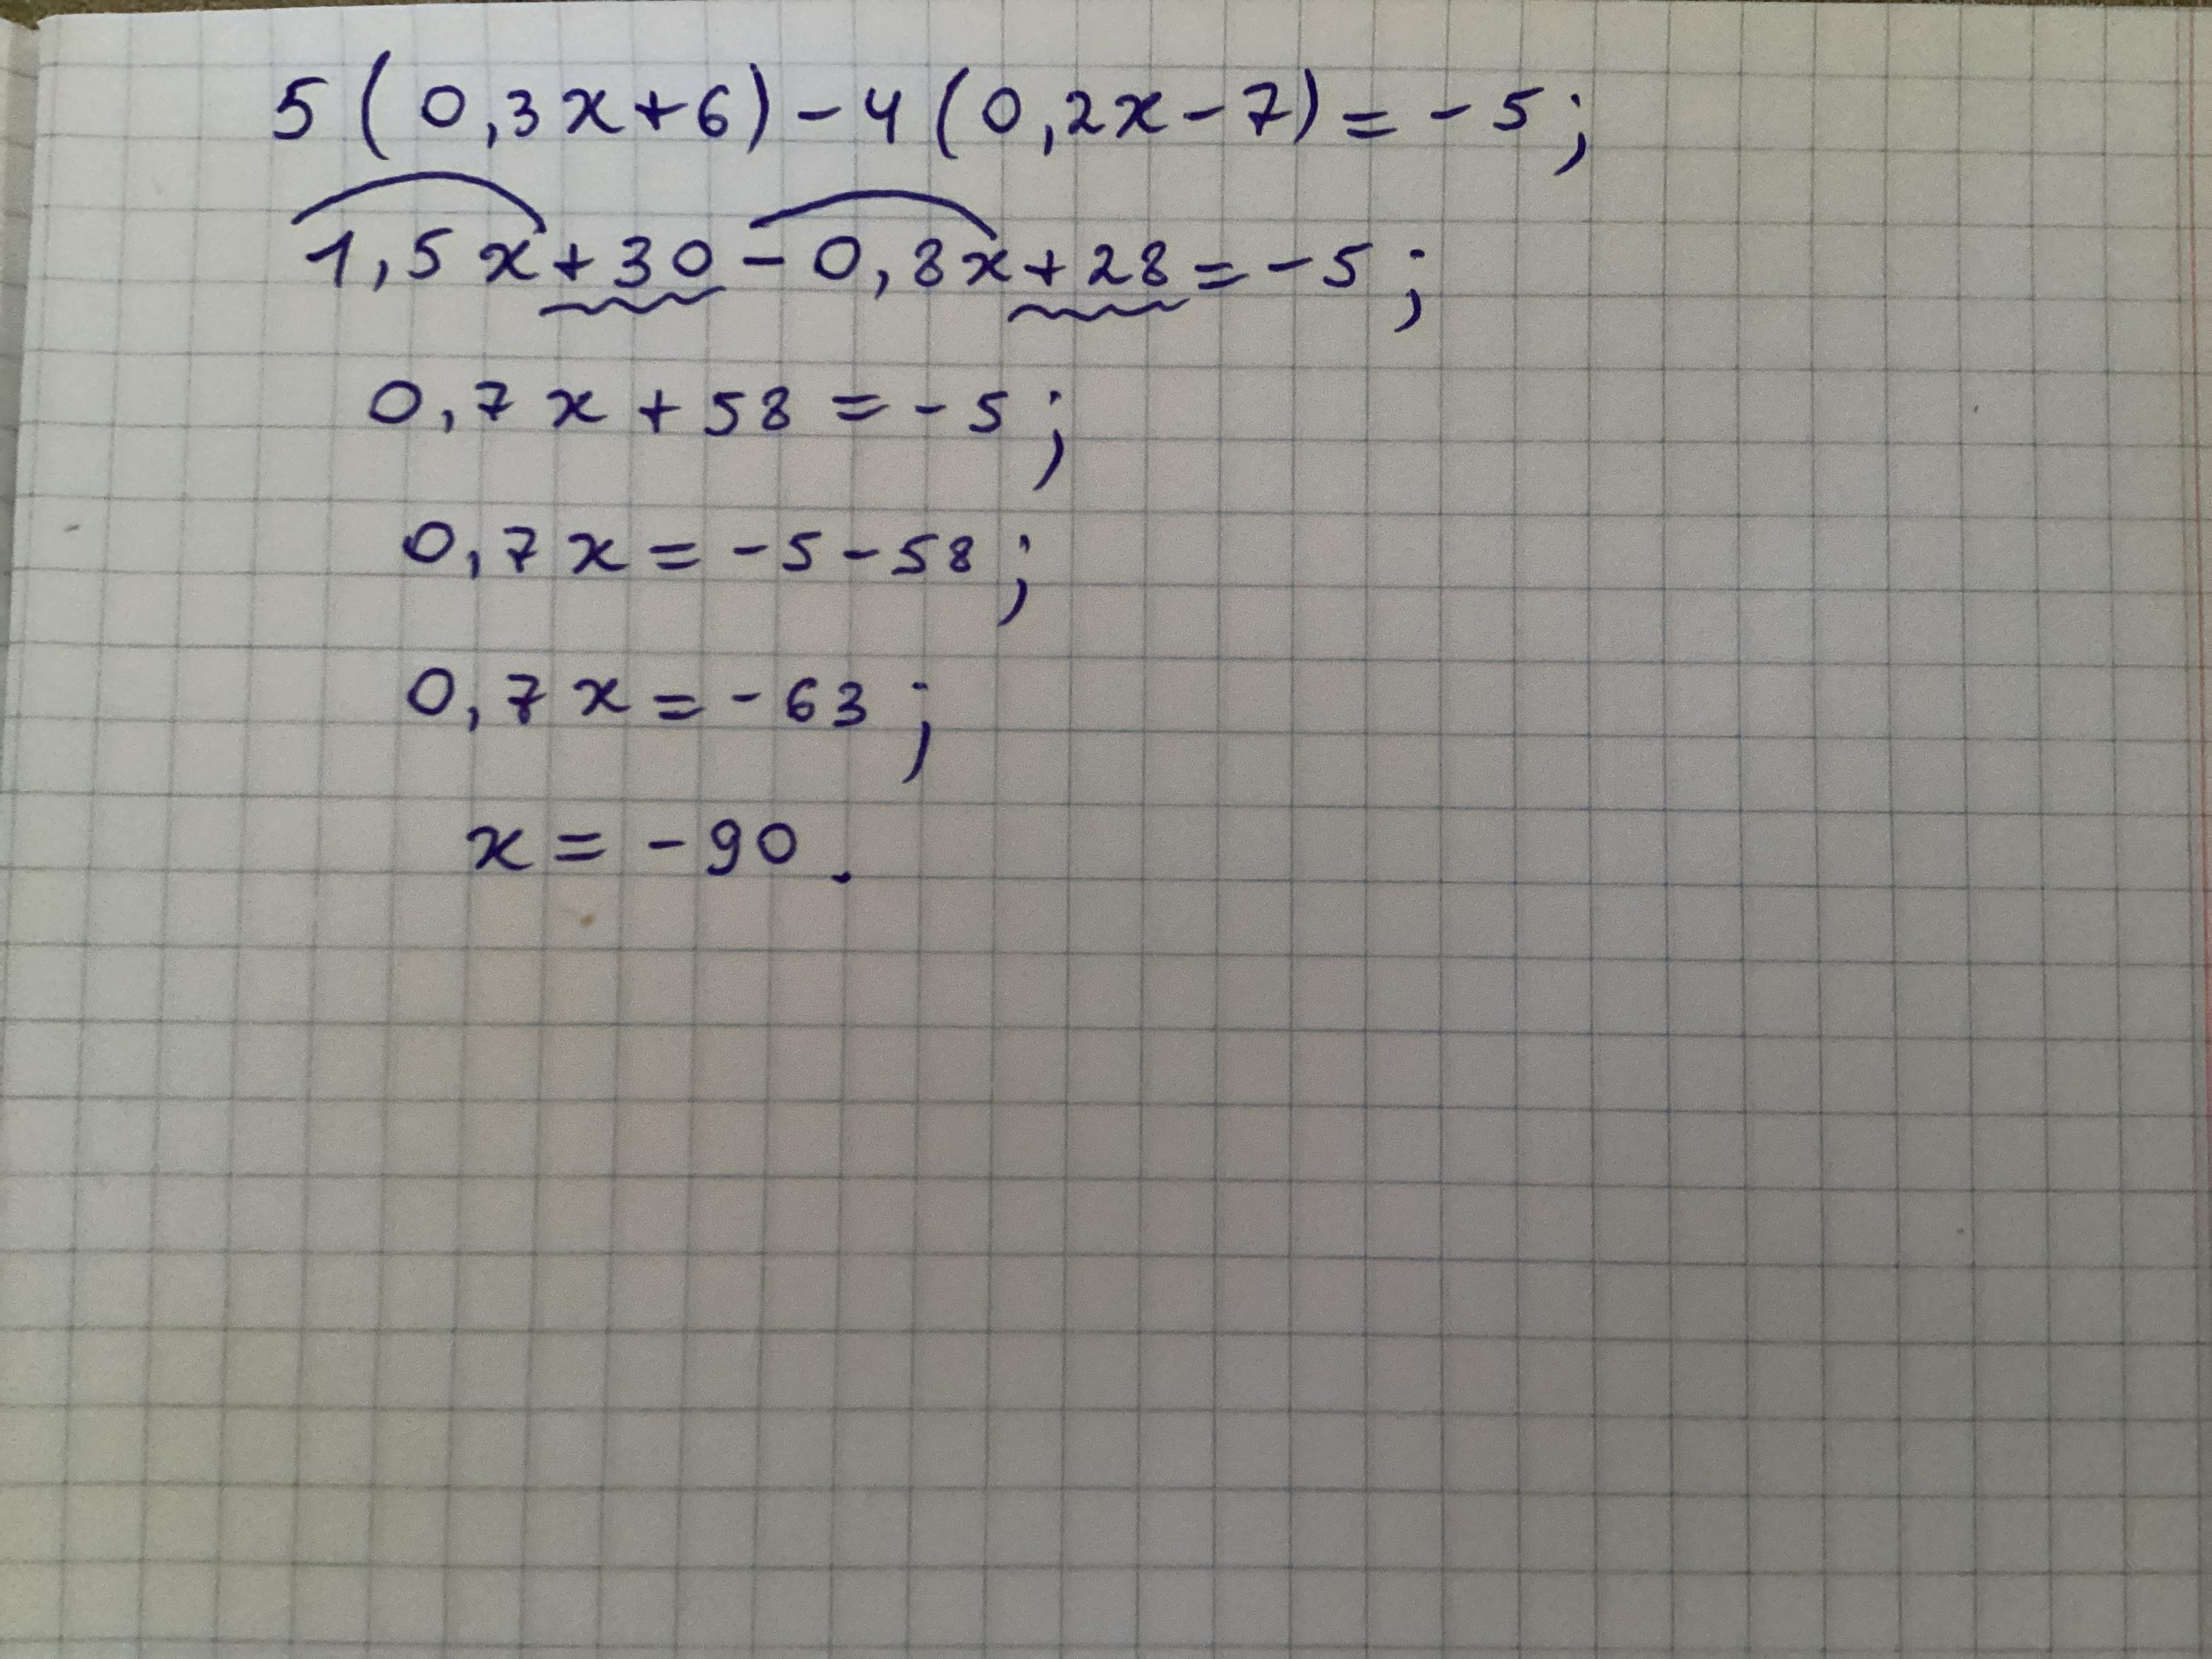 5(0,3x+6)-4(0,2x-7)=-5;
1,5x+30-0,8x+28=-5;
0,7x+58=-5;
0,7x=-5-58;
0,7x=-63;
x=-90.